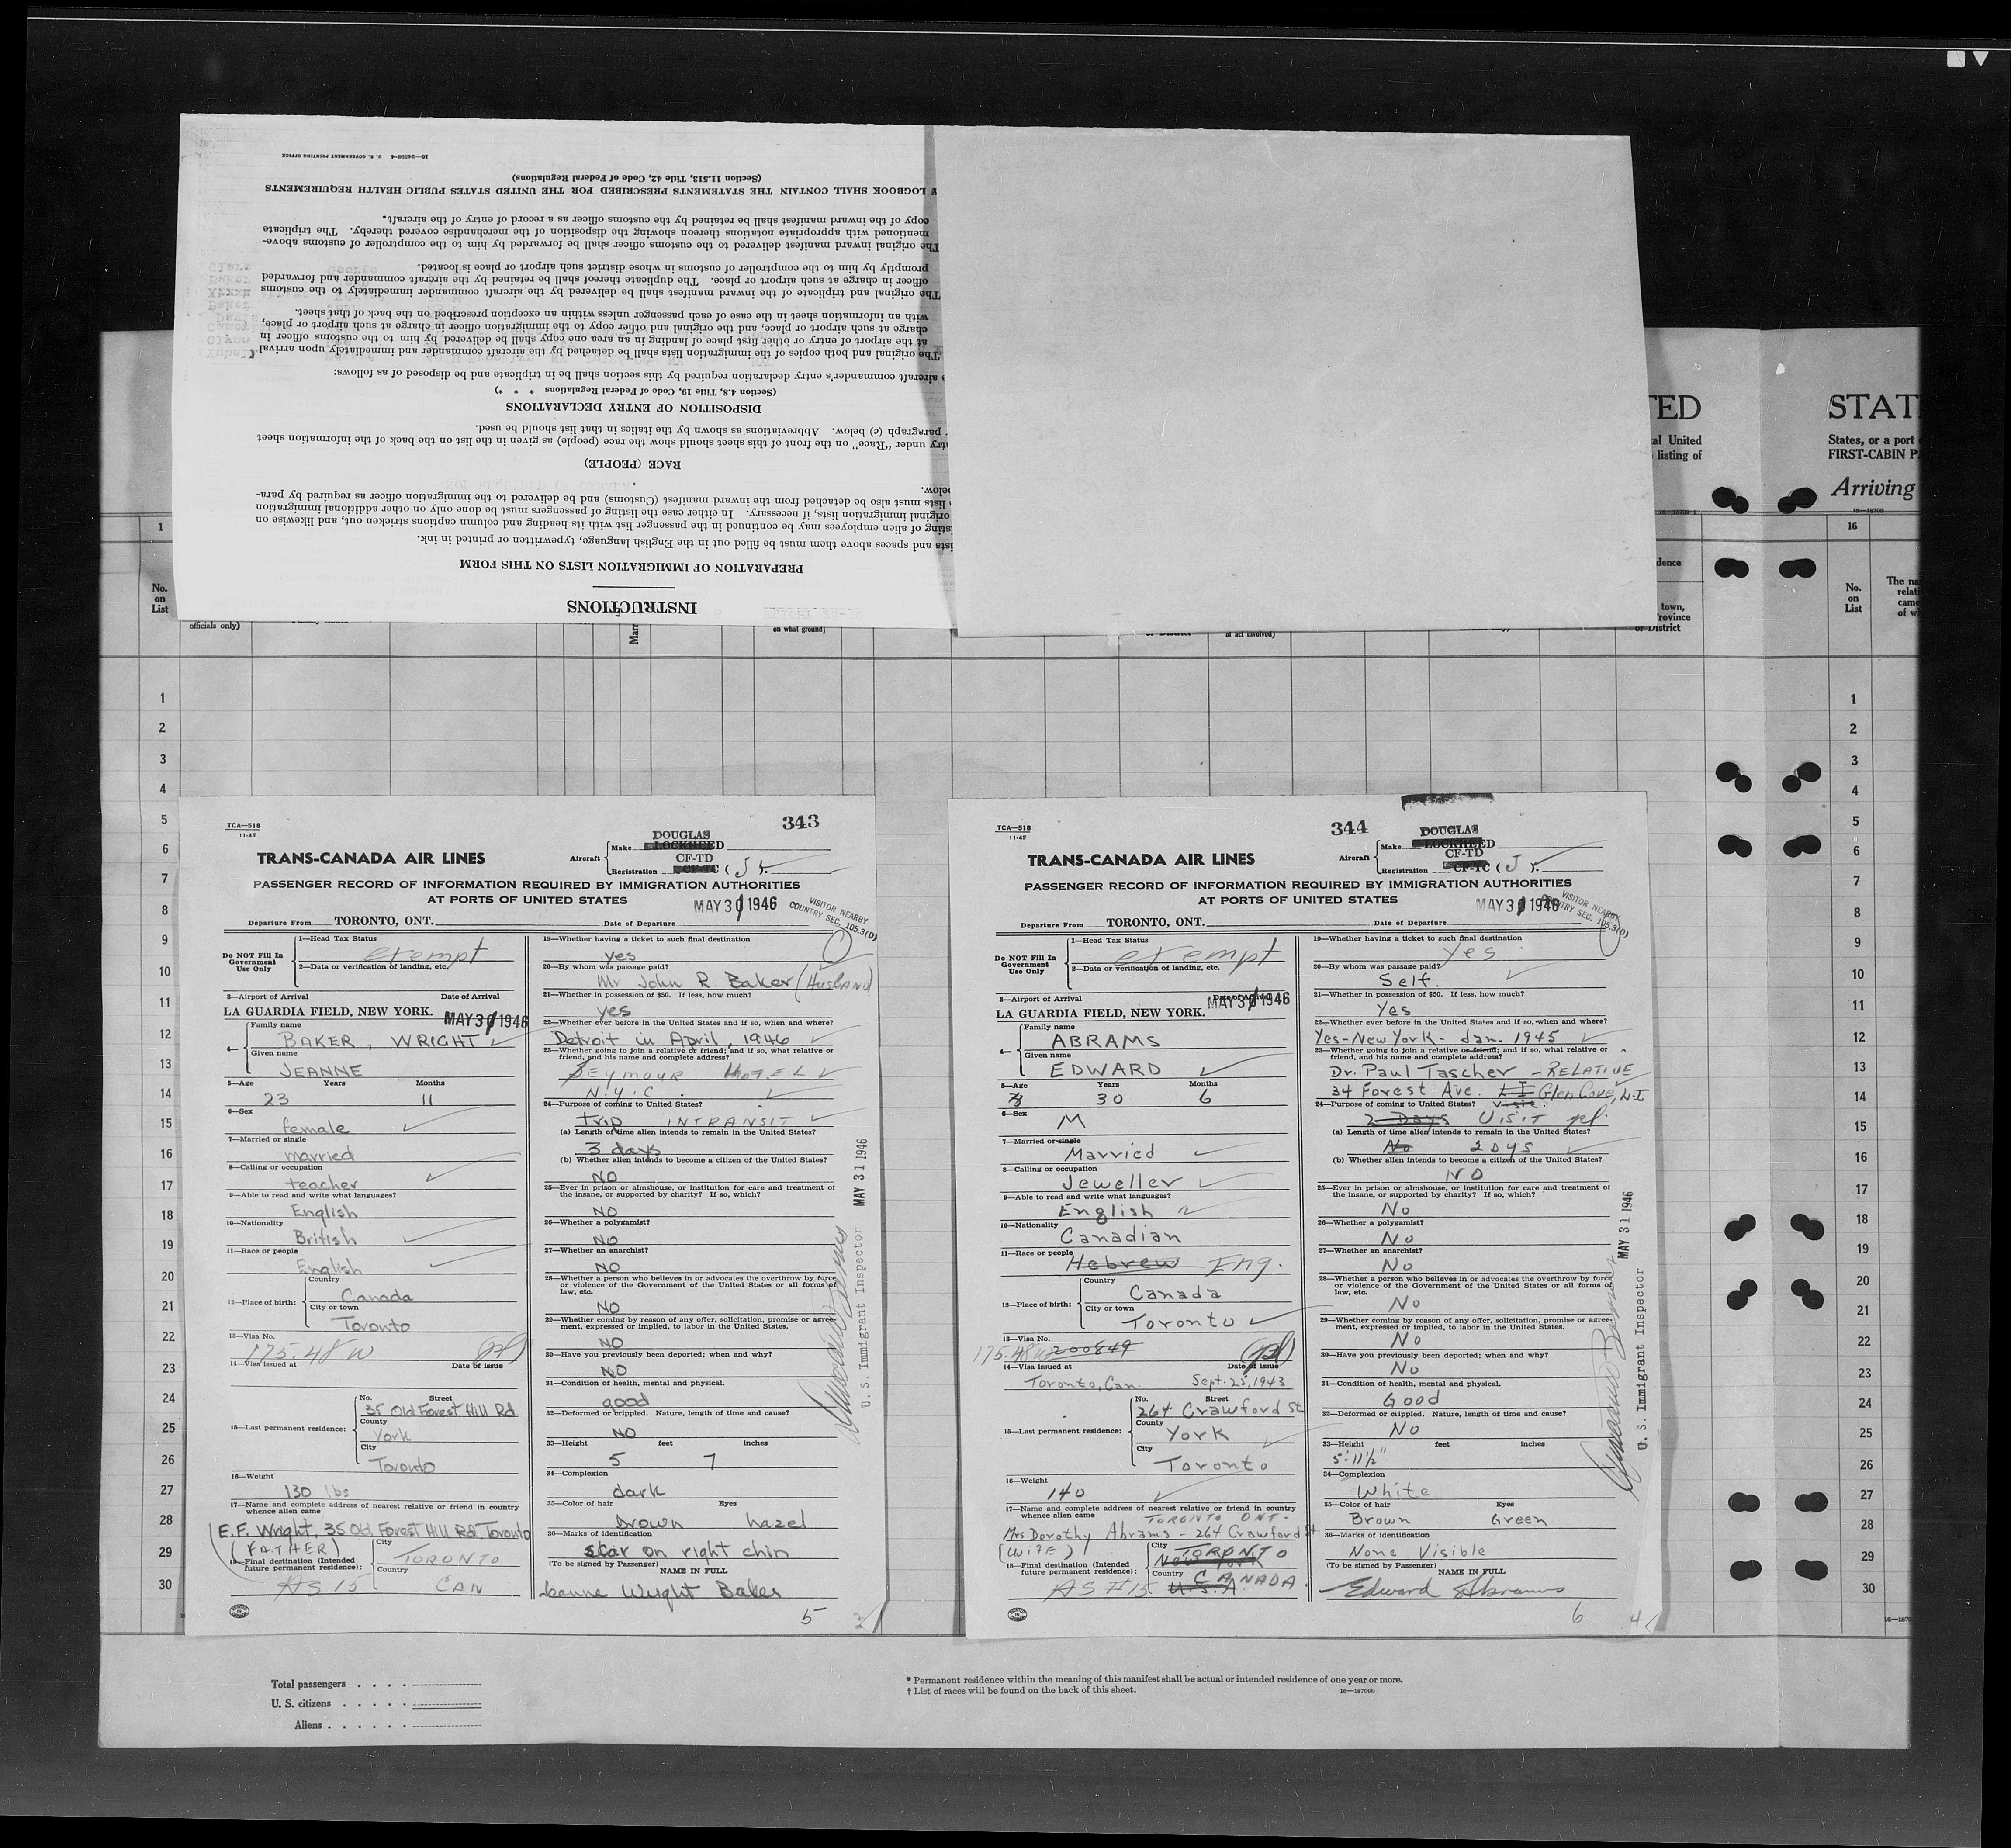 16—24598-4 U. S. GOVERNMENT PRINTING OFFICE
(Section 11.513, Title 42, Code of Federal Regulations)
LOGBOOK SHALL CONTAIN THE STATEMENTS PRESCRIBED FOR THE UNITED STATES PUBLIC HEALTH REQUIREMENTS
copy of the inward manifest shall be retained by the customs officer as a record of entry of the aircraft.
mentioned with appropriate notations thereon showing the disposition of the merchandise covered thereby. The triplicate
The original inward manifest delivered to the customs officer shall be forwarded by him to the comptroller of customs above-
promptly by him to the comptroller of customs in whose district such airport or place is located.
officer in charge at such airport or place. The duplicate thereof shall be retained by the aircraft commander and forwarded
The original and triplicate of the inward manifest shall be delivered by the aircraft commander immediately to the customs
with an information sheet in the case of each passenger unless within an exception prescribed on the back of that sheet.
charge at such airport or place, and the original and other copy to the immigration officer in charge at such airport or place,
at the airport of entry or other first place of landing in an area one copy shall be delivered by him to the customs officer in
The original and both copies of the immigration lists shall be detached by the aircraft commander and immediately upon arrival
aircraft commander's entry declaration required by this section shall be in triplicate and be disposed of as follows:
(Section 4.8, Title 19, Code of Federal Regulations * * *)
DISPOSITION OF ENTRY DECLARATIONS
paragraph (c) below. Abbreviations as shown by the italics in that list should be used.
try under "Race" on the front of this sheet should show the race (people) as given in the list on the back of the information sheet
RACE (PEOPLE)
below.
lists must also be detached from the inward manifest (Customs) and be delivered to the immigration officer as required by para-
original immigration lists, if necessary. In either case the listing of passengers must be done only on other additional immigration
sting of alien employees may be continued in the passenger list with its heading and column captions stricken out, and likewise on
sts and spaces above them must be filled out in the English language, typewritten or printed in ink.
PREPARATION OF IMMIGRATION LISTS ON THIS FORM
INSTRUCTIONS
TED
al United
listing of
dence
town,
Province
or District
STAT
States, or a port
FIRST-CABIN P
Arriving
16—18700
16
No.
on
List
The na
relati
came
of w
1
No.
on
List
officials only)
Marr
on what ground]
or act involved)
1
2
3
4
5
6
7
8
9
10
11
12
13
14
15
16
17
18
19
20
21
22
23
24
25
26
27
28
29
30
TCA—518
11-45
343
DOUGLAS
Make LOCKHEED
Aircraft
CF-TD
Registration CF-TC ( J ).
TRANS-CANADA AIR LINES
PASSENGER RECORD OF INFORMATION REQUIRED BY IMMIGRATION AUTHORITIES
AT PORTS OF UNITED STATES
MAY 31 1946
VISITOR NEARBY
COUNTRY SEC. 105.3(D)
Departure From TORONTO, ONT. Date of Departure
Do NOT Fill In
Government
Use Only
1—Head Tax Status
exempt
2—Data or verification of landing, etc.
3—Airport of Arrival Date of Arrival
LA GUARDIA FIELD, NEW YORK. MAY 31 1946
4— Family name
BAKER, WRIGHT
Given name
JEANNE
5—Age Years Months
23 11
6—Sex
female
7—Married or single
married
8—Calling or occupation
teacher
9—Able to read and write what languages?
English
10—Nationality
British
11—Race or people
English
12—Place of birth: Country
Canada
City or town
Toronto
13—Visa No.
175.48 W
14—Visa issued at Date of issue
15—Last permanent residence: No. Street
35 Old Forest Hill Rd
County
York
City
Toronto
16—Weight
130 lbs
17—Name and complete address of nearest relative or friend in country
whence alien came
E.F. Wright, 35 Old Forest Hill Rd. Toronto
(FATHER)
18—Final destination (Intended
future permanent residence): City
TORONTO
Country
AS 15 CAN
19—Whether having a ticket to such final destination
yes
20—By whom was passage paid?
Mr John R. Baker (HUSBAND)
21—Whether in possession of $50. If less, how much?
yes
22—Whether ever before in the United States and if so, when and where?
Detroit in April, 1946
23—Whether going to join a relative or friend; and if so, what relative or
friend, and his name and complete address?
SEYMOUR HOTEL
N.Y.C.
24—Purpose of coming to United States?
trip INTRANSIT
(a) Length of time alien intends to remain in the United States?
3 days
(b) Whether alien intends to become a citizen of the United States?
NO
25—Ever in prison or almshouse, or institution for care and treatment of
the insane, or supported by charity? If so, which?
NO
26—Whether a polygamist?
NO
27—Whether an anarchist?
NO
28—Whether a person who believes in or advocates the overthrow by force
or violence of the Government of the United States or all forms of
law, etc.
NO
29—Whether coming by reason of any offer, solicitation, promise or agree-
ment, expressed or implied, to labor in the United States.
NO
30—Have you previously been deported; when and why?
NO
31—Condition of health, mental and physical.
good
32—Deformed or crippled. Nature, length of time and cause?
NO
33—Height feet inches
5 7
34—Complexion
dark
35—Color of hair Eyes
brown hazel
36—Marks of identification
scar on right chin
(To be signed by Passenger) NAME IN FULL
Jeanne Wright Baker
5
U. S. Immigrant Inspector MAY 31 1946
TCA—518
11-45
344
DOUGLAS
Make LOCKHEED
Aircraft
CF-TD
Registration CF-TC ( J ).
TRANS-CANADA AIR LINES
PASSENGER RECORD OF INFORMATION REQUIRED BY IMMIGRATION AUTHORITIES
AT PORTS OF UNITED STATES
MAY 31 1946
VISITOR NEARBY
COUNTRY SEC. 105.3(D)
Departure From TORONTO, ONT. Date of Departure
Do NOT Fill In
Government
Use Only
1—Head Tax Status
exempt
2—Data or verification of landing, etc.
3—Airport of Arrival Date of Arrival
LA GUARDIA FIELD, NEW YORK. MAY 31 1946
4— Family name
ABRAMS
Given name
EDWARD
5—Age Years Months
30 6
6—Sex
M
7—Married or single
Married
8—Calling or occupation
Jeweller
9—Able to read and write what languages?
English
10—Nationality
Canadian
11—Race or people
Hebrew Eng.
12—Place of birth: Country
Canada
City or town
Toronto
13—Visa No.
175.48 W 200849
14—Visa issued at Date of issue
Toronto, Can. Sept. 25, 1943
15—Last permanent residence: No. Street
264 Crawford St
County
York
City
Toronto
16—Weight
140
17—Name and complete address of nearest relative or friend in country
whence alien came
TORONTO ONT.
Mrs. Dorothy Abrams - 264 Crawford St
(WIFE)
18—Final destination (Intended
future permanent residence): City
TORONTO
New York
Country CANADA
AS #15 U.S.A.
19—Whether having a ticket to such final destination
Yes
20—By whom was passage paid?
Self.
21—Whether in possession of $50. If less, how much?
Yes
22—Whether ever before in the United States and if so, when and where?
Yes - New York - Jan. 1945
23—Whether going to join a relative or friend; and if so, what relative or
friend, and his name and complete address?
Dr. Paul Tascher - RELATIVE
34 Forest Ave. L I Glen Cove, L.I
24—Purpose of coming to United States? Visit.
2 Days VISIT
(a) Length of time alien intends to remain in the United States?
No 2 DYS
(b) Whether alien intends to become a citizen of the United States?
NO
25—Ever in prison or almshouse, or institution for care and treatment of
the insane, or supported by charity? If so, which?
No
26—Whether a polygamist?
No
27—Whether an anarchist?
No
28—Whether a person who believes in or advocates the overthrow by force
or violence of the Government of the United States or all forms of
law, etc.
No
29—Whether coming by reason of any offer, solicitation, promise or agree-
ment, expressed or implied, to labor in the United States.
No
30—Have you previously been deported; when and why?
No
31—Condition of health, mental and physical.
Good
32—Deformed or crippled. Nature, length of time and cause?
No
33—Height feet inches
5' 11½"
34—Complexion
White
35—Color of hair Eyes
Brown Green
36—Marks of identification
None Visible
(To be signed by Passenger) NAME IN FULL
Edward Abrams
6 4
U. S. Immigrant Inspector MAY 31 1946
1
2
3
4
5
6
7
8
9
10
11
12
13
14
15
16
17
18
19
20
21
22
23
24
25
26
27
28
29
30
Total passengers
U. S. citizens
Aliens
* Permanent residence within the meaning of this manifest shall be actual or intended residence of one year or more.
† List of races will be found on the back of this sheet.